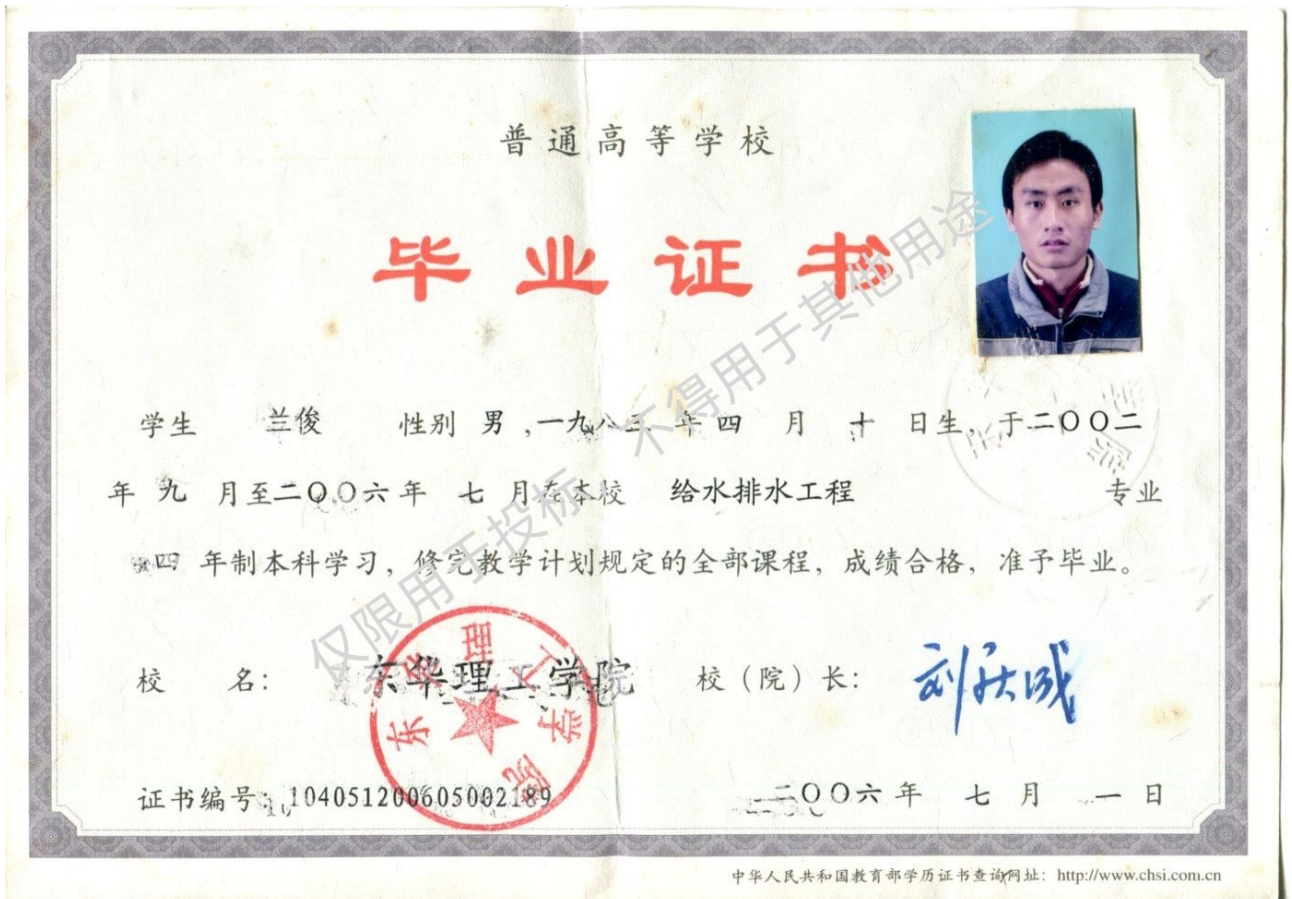 普通高等学校
毕业证书
学生 兰俊 性别 男,一九八三 年 四 月 十 日生,于二〇〇二
年 九 月至二〇〇六年 七 月在本校 给水排水工程 专业
四 年制本科学习,修完教学计划规定的全部课程,成绩合格,准予毕业。
校 名: 东华理工学院 校(院)长: 刘庆成
东华理工学院
证书编号: 104051200605002189 二〇〇六 年 七 月 一 日
中华人民共和国教育部学历证书查询网址: http://www.chsi.com.cn
仅限用于投标,不得用于其他用途